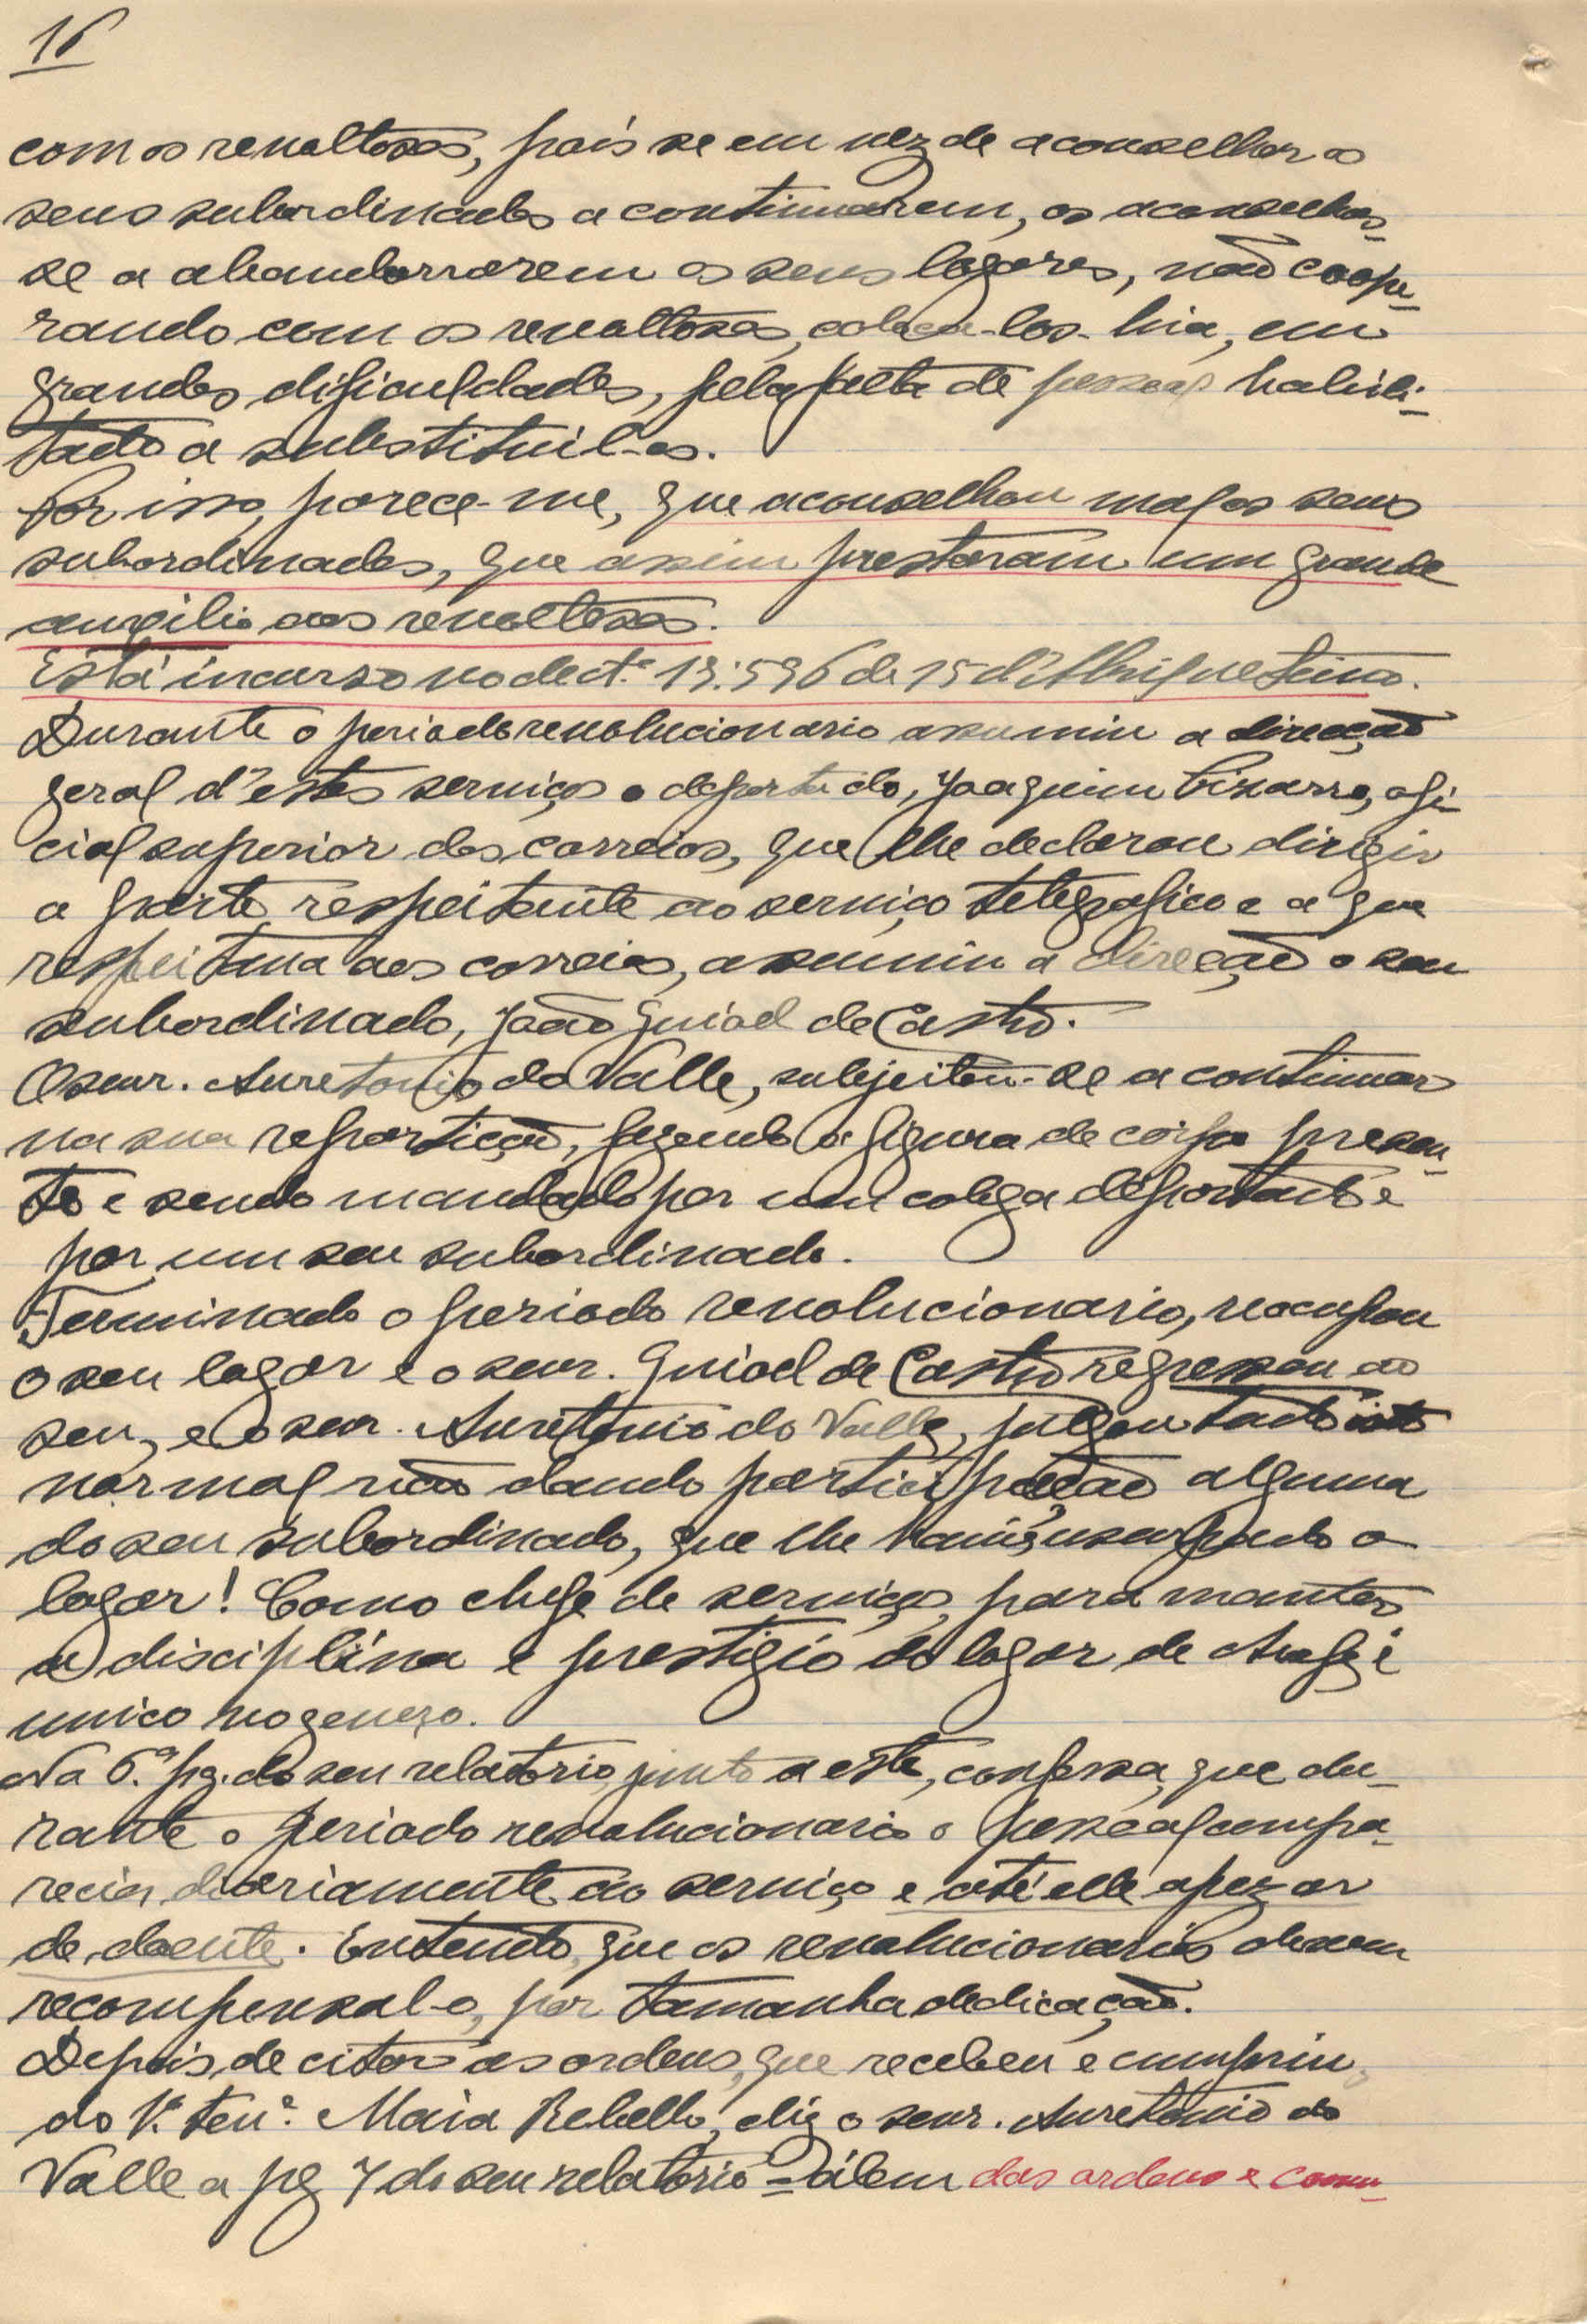 16
com os revoltosos, pois se em vez de aconselhar os
seus subordinados a continuarem, os aconselhas-
se a abandonarem os seus logares, não coope-
rando com os revoltosos, coloca-los-hia, em
grandes dificuldades, pela falta de pessoal habili-
tado a substituil-os.
Por isso, parece-me, que aconselhou mal os seus
subordinados, que assim prestaram um grande
auxilio aos revoltosos.
Está incurso no dect.º 19:596 de 15 d'Abril ultimo.
Durante o periodo revolucionario assumiu a direcção
geral d'estes serviços o deportado, Joaquim Bizarro, ofi-
cial superior dos correios, que lhe declarou dirigir
a parte respeitante ao serviço telegrafico e a que
respeitava aos correios, assumiu a direcção o seu
subordinado, João Guiod de Castro.
O senr. Auretonio do Valle, subjeitou-se a continuar
na sua repartição, fazendo a figura de corpo presen-
te e sendo mandado por um colega deportado e
por um seu subordinado.
Terminado o periodo revolucionario, reocupou
o seu logar e o senr. Guiod de Castro regressou ao
seu, e o senr. Auretonio do Valle, julgou tudo isto
normal não dando participação alguma
do seu subordinado, que lhe havia usurpado o
logar! Como chefe de serviços, para manter
a disciplina e prestigio do logar de chefe é
unico no genero.
Na 6.ª pg. do seu relatorio, junto a este, confessa, que du-
rante o periodo revolucionario o pessoal compa-
recia diariamente ao serviço e até elle apezar
de doente. Entendo, que os revolucionarios devem
recompensal-o, por tamanha dedicação.
Depois de citar as ordens, que recebeu e cumpriu,
do 1.º ten.e Maia Rebello, diz o senr. Auretonio do
Valle a pg 7 do seu relatorio = além das ordens e comu-